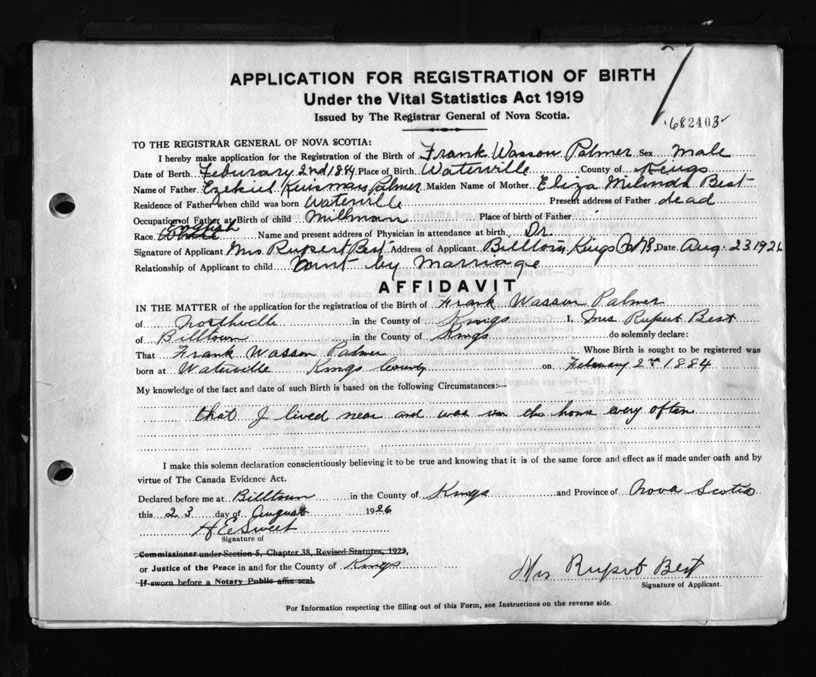 APPLICATION FOR REGISTRATION OF BIRTH
Under the Vital Statistics Act 1919
Issued by The Registrar General of Nova Scotia.
682403
TO THE REGISTRAR GENERAL OF NOVA SCOTIA:
I hereby make application for the Registration of the Birth of Frank Wasson Palmer Sex Male
Date of Birth Feburary 2nd 1884 Place of Birth Waterville County of Kings
Name of Father Ezekiel Palmer Maiden Name of Mother Eliza Best
Residence of Father when child was born Waterville Present address of Father dead
Occupation of Father at Birth of child Millman Place of birth of Father
English
Race Name and present address of Physician in attendance at birth Dr.
Signature of Applicant Mrs Rupert Best Address of Applicant Billtown Kings Co NS Date Aug. 23 1926
Relationship of Applicant to child Aunt by Marriage
AFFIDAVIT
IN THE MATTER of the application for the registration of the Birth of Frank Wasson Palmer
of Northville in the County of Kings I, Mrs Rupert Best
of Billtown in the County of Kings do solemnly declare:
That Frank Wasson Palmer Whose Birth is sought to be registered was
born at Waterville Kings County on February 2nd 1884
My knowledge of the fact and date of such Birth is based on the following Circumstances:--
that I lived near and was in the home every often
I make this solemn declaration conscientiously believing it to be true and knowing that it is of the same force and effect as if made under oath and by
virtue of The Canada Evidence Act.
Declared before me at Billtown in the County of Kings and Province of Nova Scotia
this 23 day of August 1926
H E Sweet
Signature of
Commissioner under Section 5, Chapter 38, Revised Statutes, 1923,
or Justice of the Peace in and for the County of Kings
If sworn before a Notary Public affix seal.
Mrs Rupert Best
Signature of Applicant.
For Information respecting the filling out of this Form, see Instructions on the reverse side.